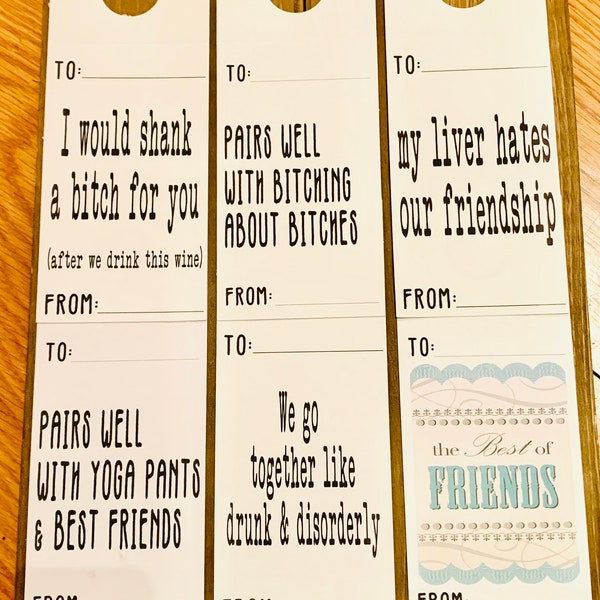 TO:
I would shank
a bitch for you
(after we drink this wine)
FROM:
TO:
PAIRS WELL
WITH BITCHING
ABOUT BITCHES
FROM:
TO:
my liver hates
our friendship
FROM:
TO:
PAIRS WELL
WITH YOGA PANTS
& BEST FRIENDS
FROM:
TO:
We go
together like
drunk & disorderly
FROM:
TO:
the Best of
FRIENDS
FROM: